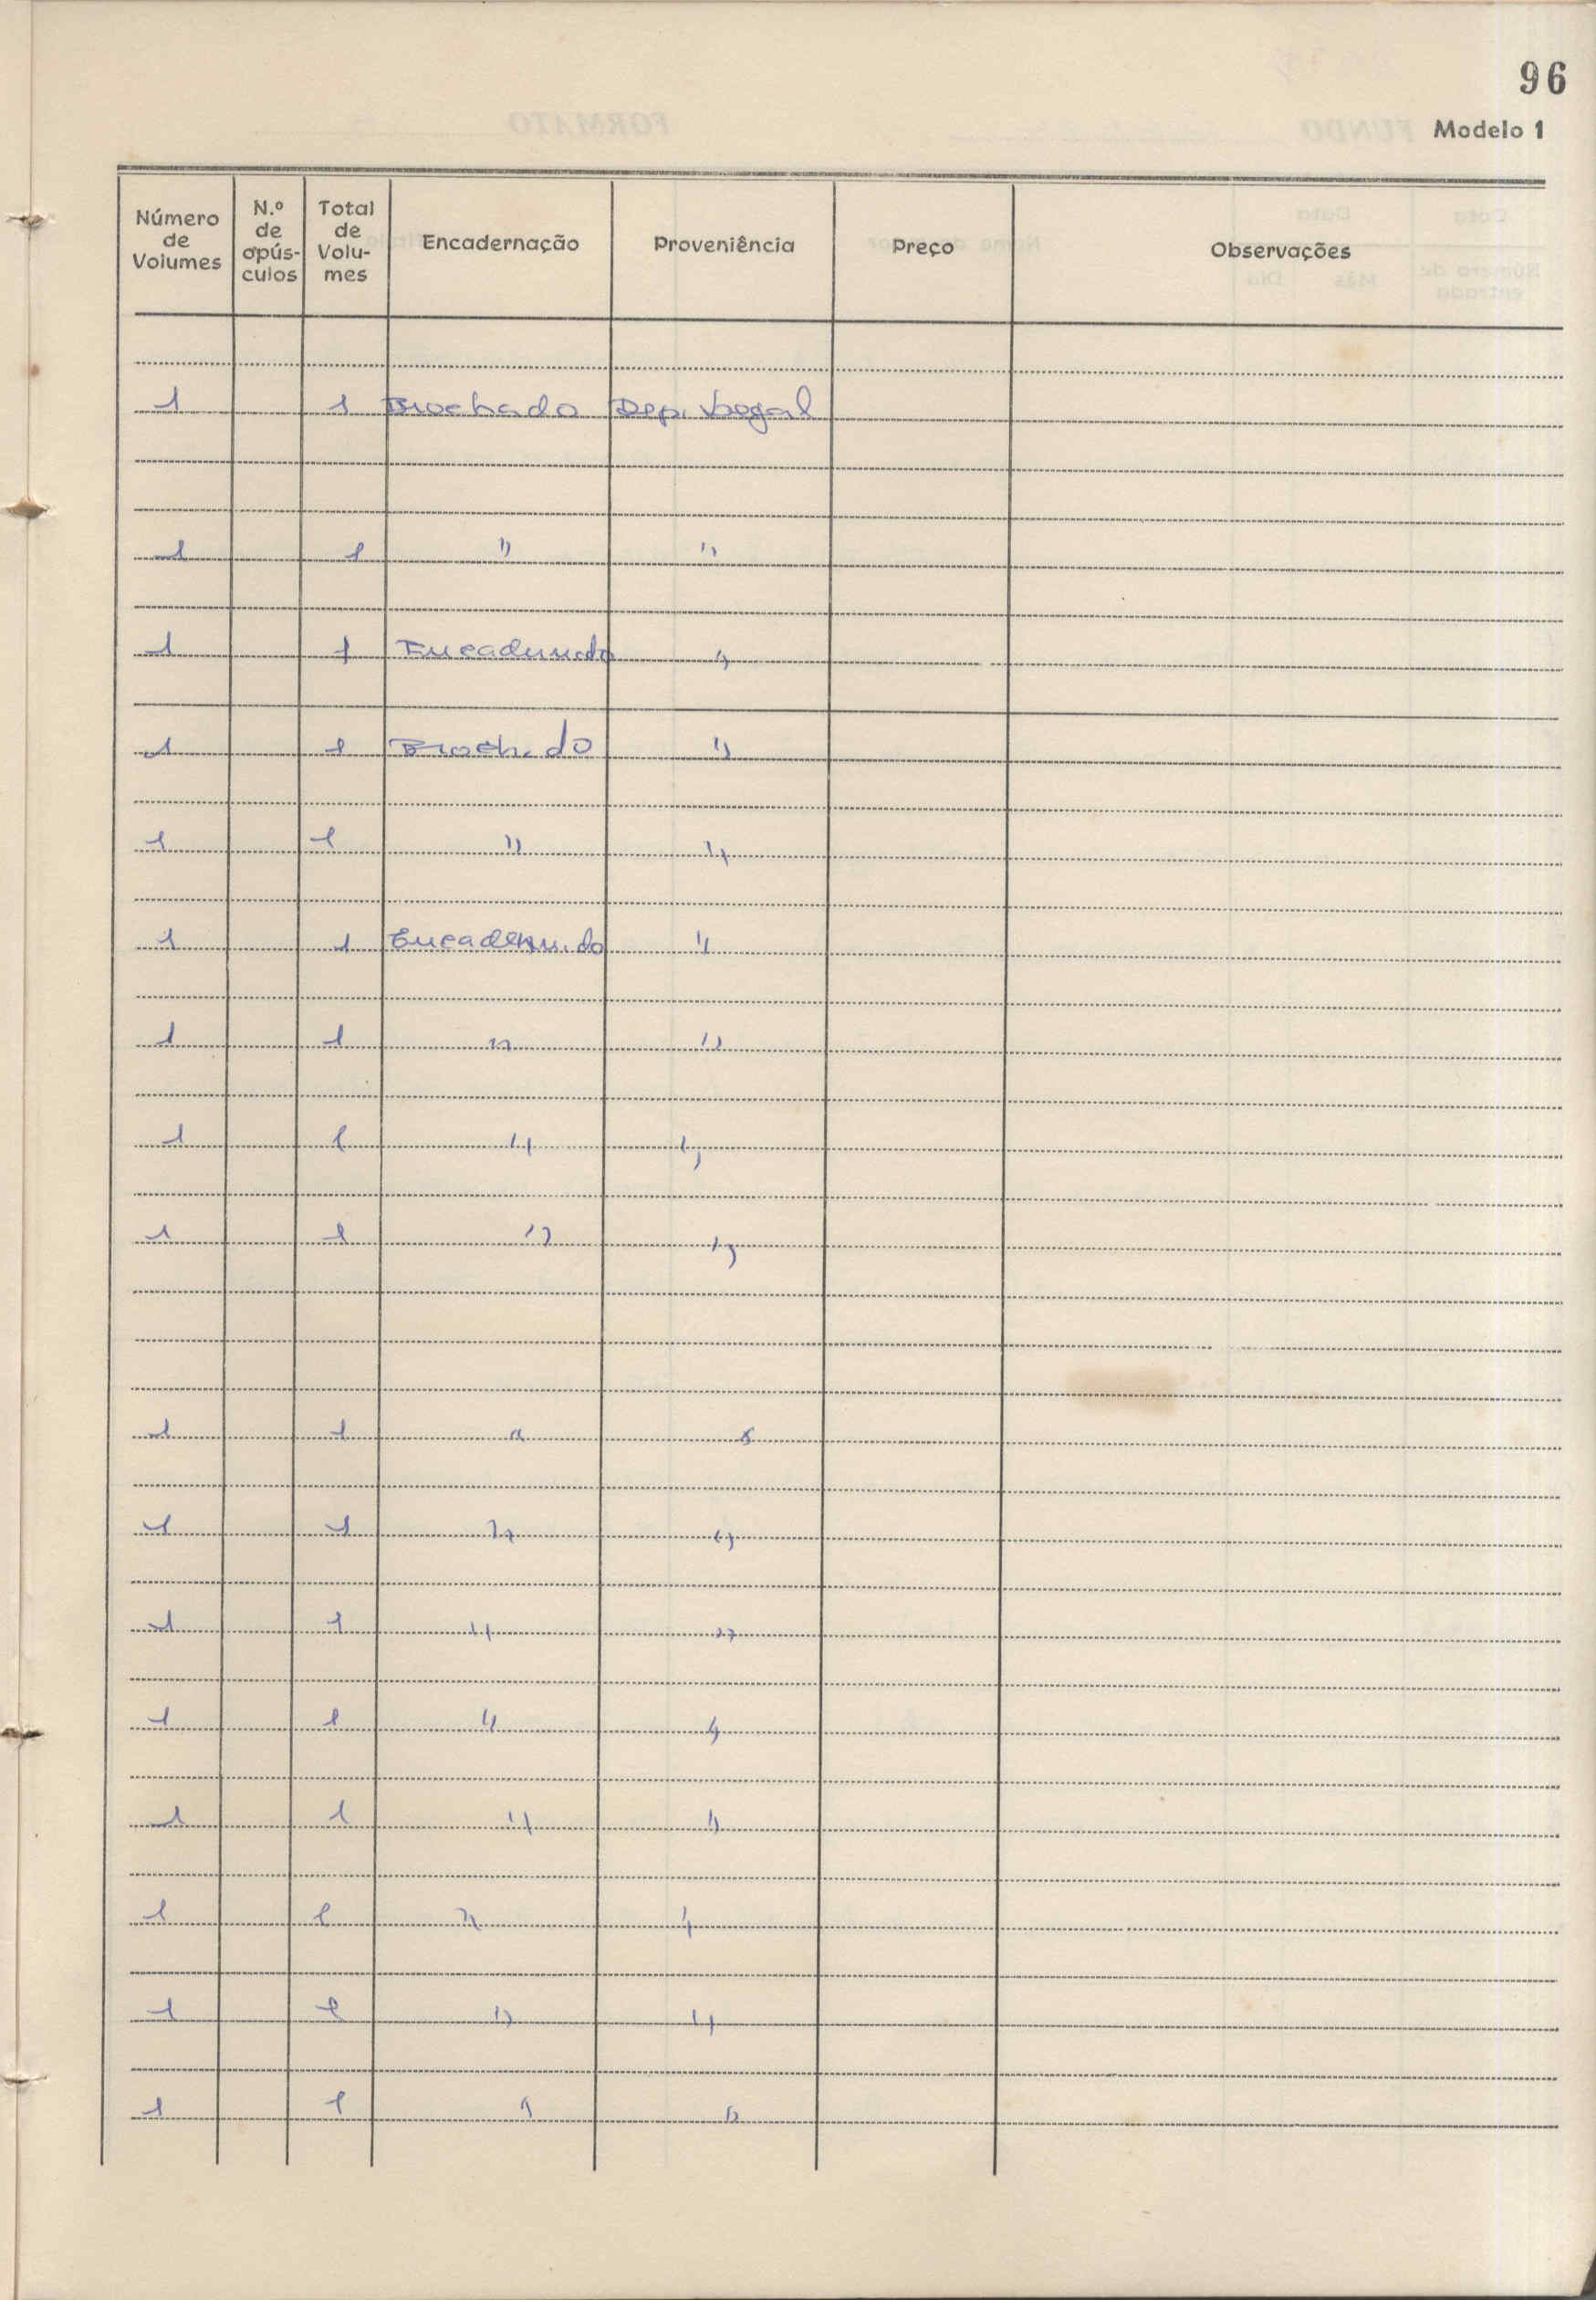 96
Modelo 1
Número de Volumes | N.º de opús-culos | Total de Volu-mes | Encadernação | Proveniência | Preço | Observações
1 1 Brochado Dep. Legal
1 1 " "
1 1 Encadernado "
1 1 Brochado "
1 1 " "
1 1 Encadernado "
1 1 " "
1 1 " "
1 1 " "
1 1 " "
1 1 " "
1 1 " "
1 1 " "
1 1 " "
1 1 " "
1 1 " "
1 1 " "